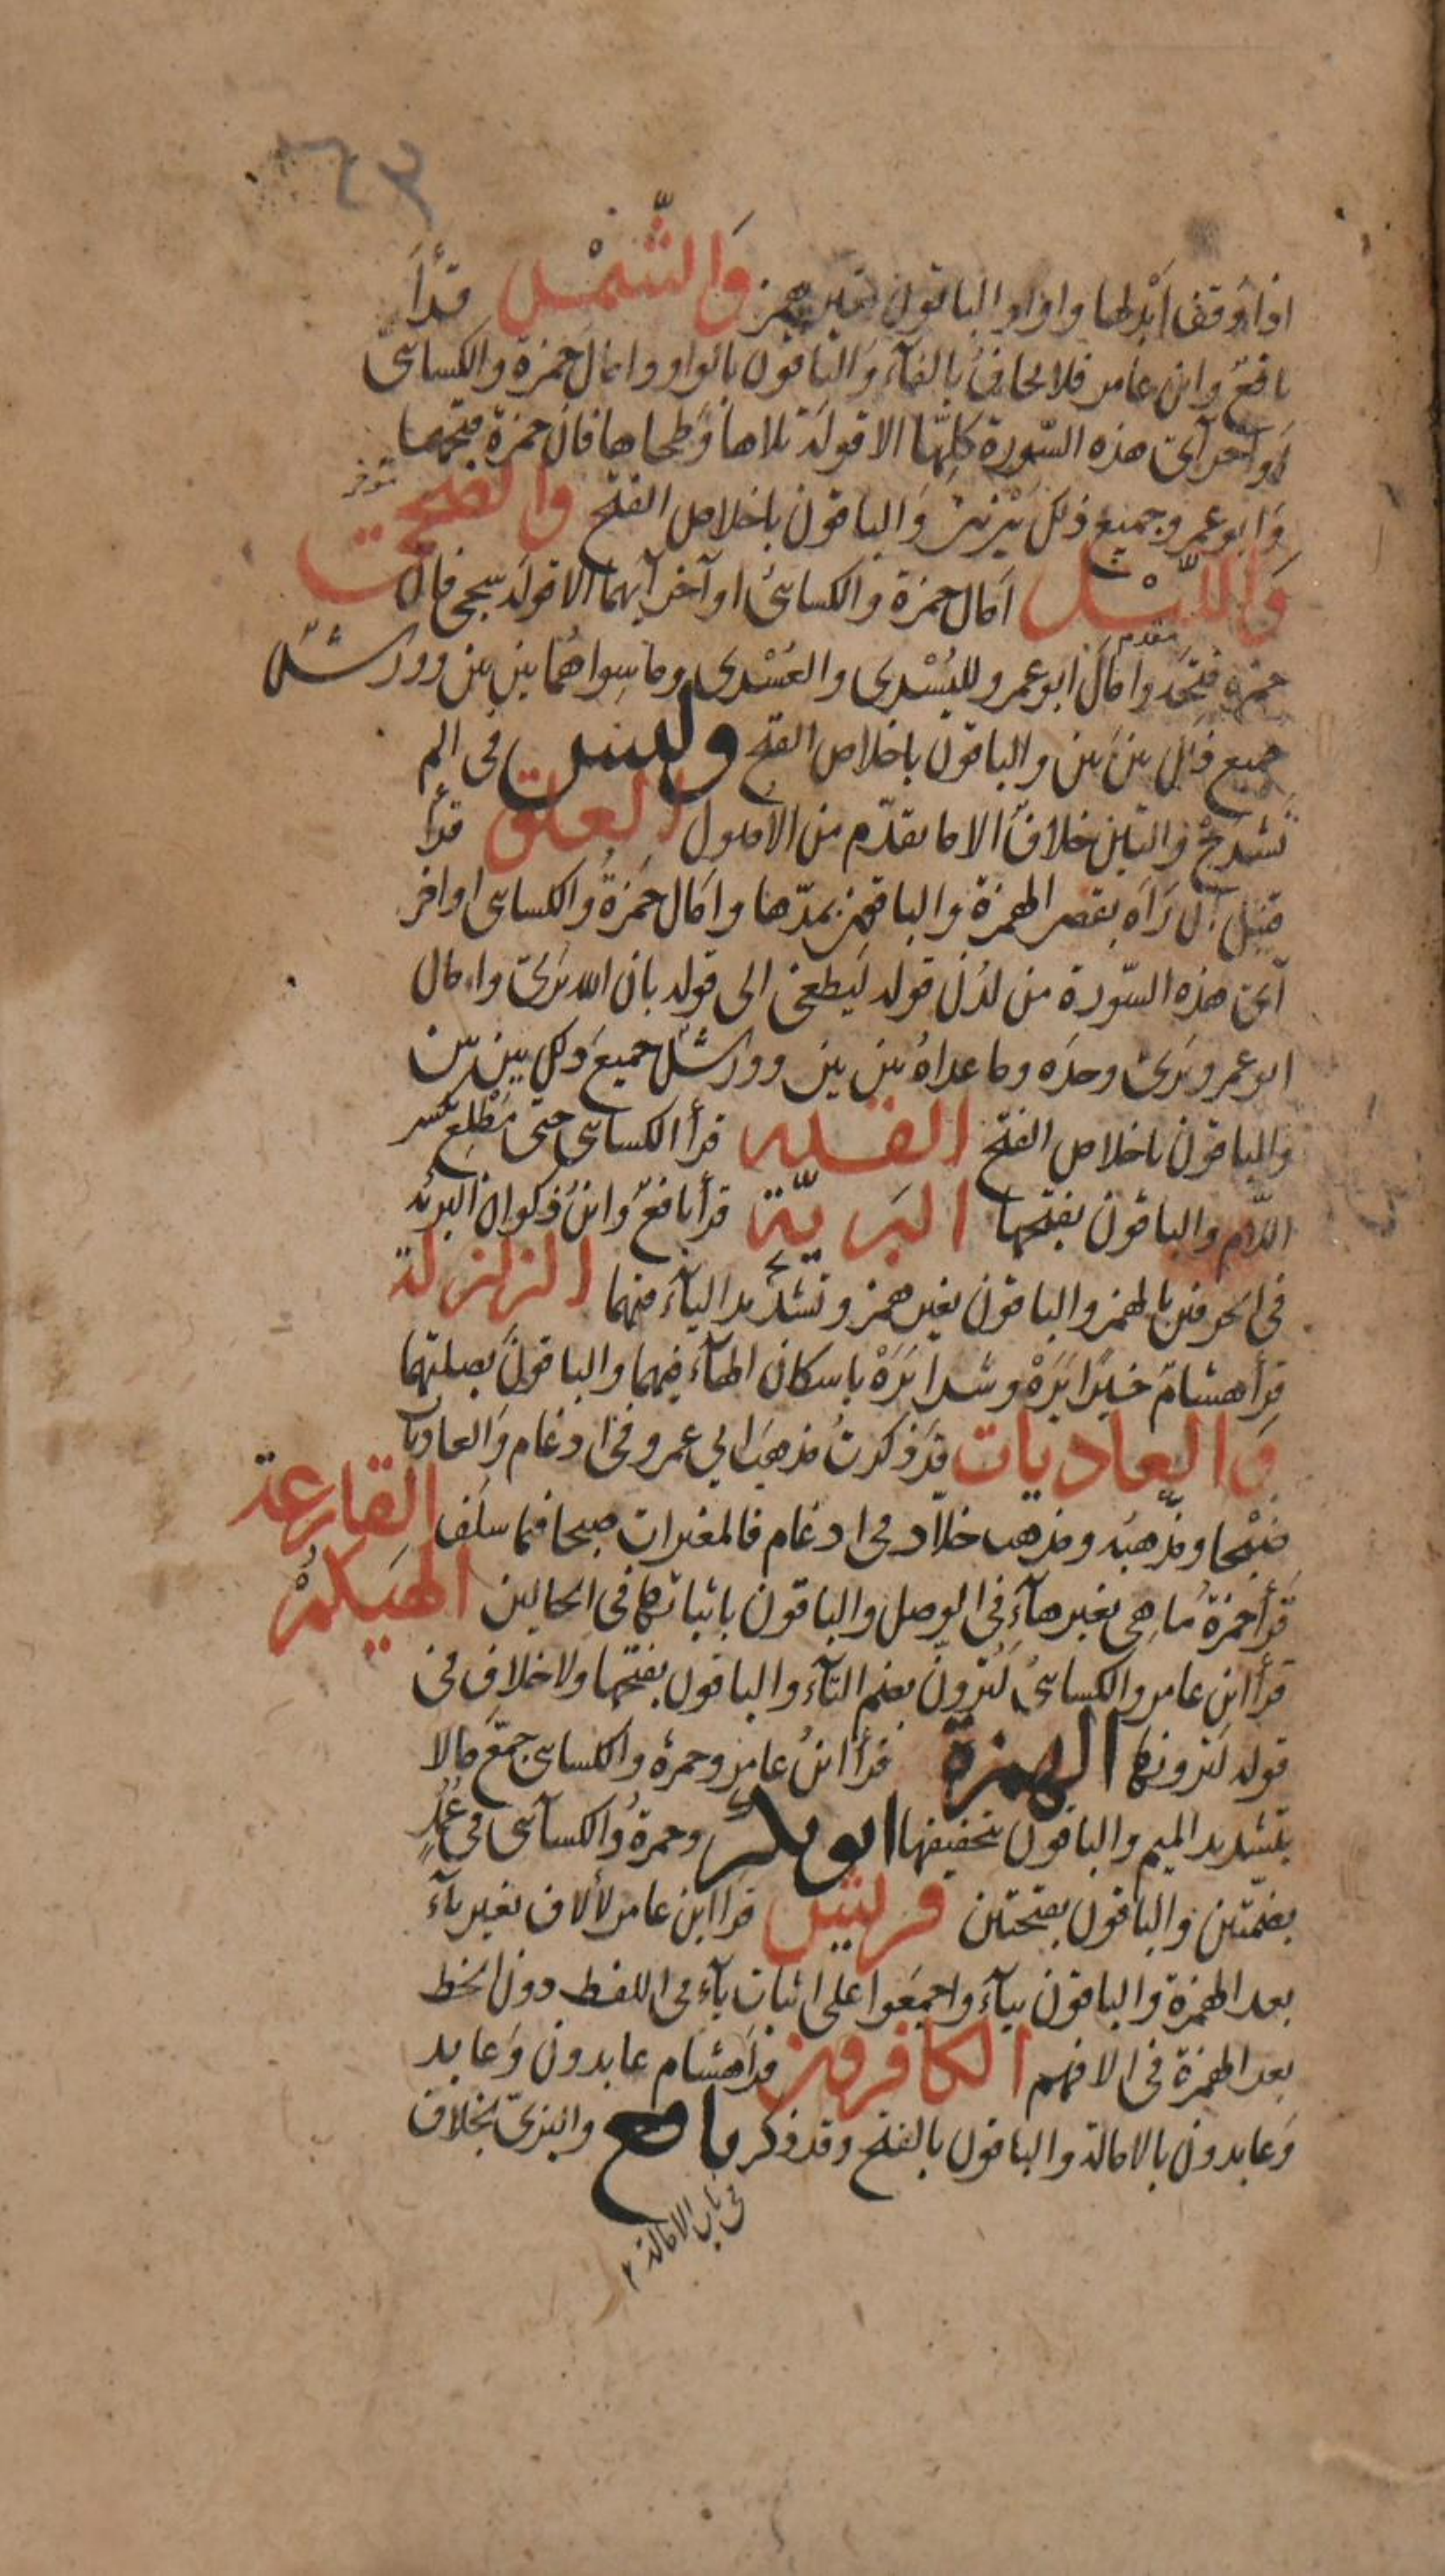 ٢٤٣
اذا وقف ابدلها واوا والباقون بغير همز وَالشَّمْس قرأَ
نافعٌ وابن عامر فلا يخافُ بالفآء وَالباقون بالواو وامال حمزة والكسائى
اَواخر آى هذه السّورة كلِّها الا قولَهُ تلاها وَطحاها فان حمزة فتحهما
وَابوعمرو جميع ذلك بَيْن بَيْن وَالباقون باخلاص الفتح وَالضحى
مؤخر
وَاللَّيْل اَمال حمزة والكسائىُ اوآخر آيهما الا قولَه سَجى فان
مقدم
حمزه فتحَه واَمال ابوعمرو لليُسْرى والعُسْرى وما سِواهُما بَين بَين وورش
جميع ذلك بَين بَين والباقون باخلاص الفتح وليس فى الم
نشرَحْ والتين خلافٌ الا ما تقدّم من الاصول العلق قرأ
قنبل اَن رَاَه بقصر الهمزة والباقون بمدّها واَمال حمزةُ والكسائى اواخر
آى هذه السّورة من لدُن قوله ليَطغى الى قوله بان الله يَرى وامال
ابوعمرو يَرى وحدَه وما عداهُ بَين بَين وورش جميعَ ذلك بين بين
والباقون باخلاص الفتح القدر قرأ الكسائى حتى مَطْلِع بكسر
اللّام والباقون بفتحها البَريّة قرأ نافعٌ وابنُ ذكوان البرئه
فى الحرفين بالهمز والباقون بغير همز وتشديد اليآء منهما الزلزلة
قرأ هشامٌ خيرًا يَرَهْ وشرا يَرَهْ باسكان الهآء فيهما والباقون بصلتهما
وَالعاديات قد ذكرتُ مذهبَ ابي عمرو فى ادغام وَالعاديات
ضَبْحا ومذهبه ومذهب خلاّد فى ادغام فالمغيرات صبحا فيما سلف القارعة
قَرأ حمزة مَا هِى بغير هآء فى الوصل والباقون باثباتها فى الحالين الهيكمُ
قرأ ابن عامر والكسائىُ لَتُرَوُنّ بضم التآء والباقون بفتحها ولا خلاف فى
قوله لَتَرونها الهمزة قرأ ابنُ عامر وحمزة والكسائى جمّعَ مالا
بتشديد الميم والباقون بتخفيفها ابوبكر وحمزةُ والكسآئى فى عُمُدٍ
بضمّتين والباقون بفتحتين قريش قرا ابن عامر لألاف بغير يآء
بعد الهمزة والباقون بيآء واجمعوا على اثبات يآء فى اللفظ دون الخط
بعد الهمزة فى الافهم الكافرون قرأ هشام عابدون وَعابد
وَعابدون بالامالة والباقون بالفتح وقد ذكر نافع والبزىّ بخلاف
فى باب الامالة ٢